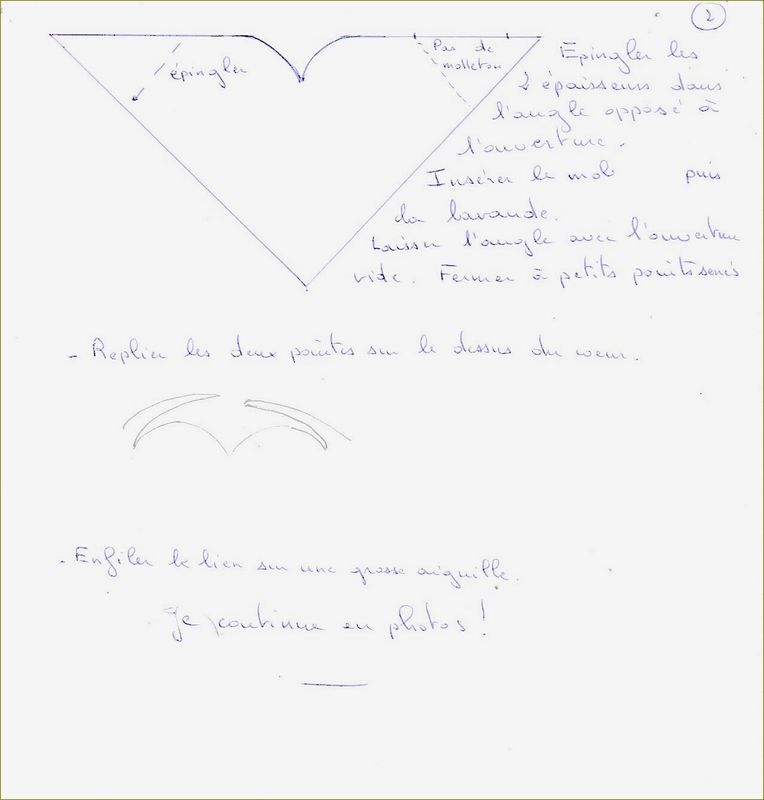 2
Pas de
molleton
épingler
Epingler les
2 épaisseurs dans
l'angle opposé à
l'ouverture.
Insérer le mol puis
la lavande.
Laisser l'angle avec l'ouverture
vide. Fermer à petits points serrés
- Replier les deux pointes sur le dessus du coeur.
- Enfiler le lien sur une grosse aiguille.
Je continue en photos !